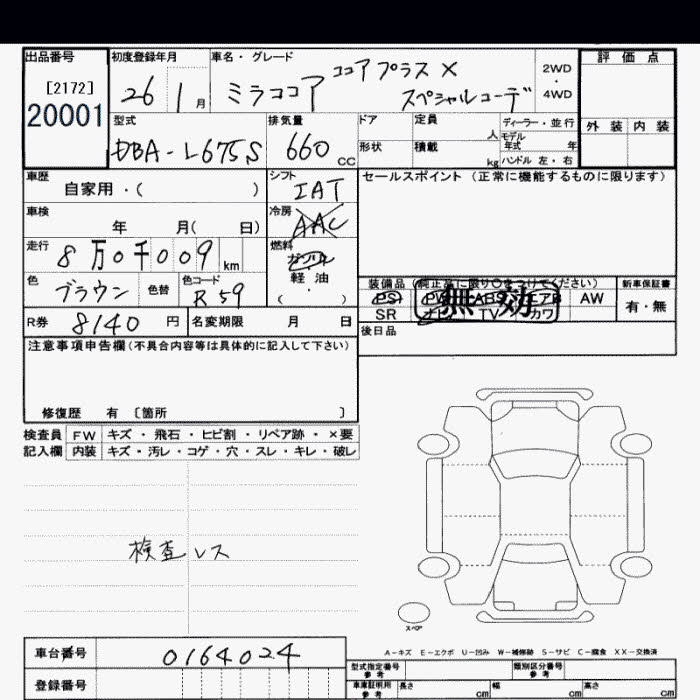 出品番号 初度登録年月 車名・グレード 評価点
[2172] ココアプラス X 2WD
20001 26 1 月 ミラココア スペシャルコーデ ・ 4WD
型式 排気量 ドア 定員 ディーラー・並行 外装 内装
DBA-L675S 660 CC 人 モデル年式 年
形状 積載 kg ハンドル 左・右
車歴 シフト セールスポイント (正常に機能するものに限ります)
自家用・( ) IAT
車検 冷房
年 月( 日) AAC
走行 燃料
8万0千009 km ガソリン
色 色替 色コード 軽油 装備品 (純正品に限り○をつけてください) 新車保証書
ブラウン R59 ・ ( ) PS PW ABS エアB AW 有・無
無効
SR ナビ TV カワ
R券 8140 円 名変期限 月 日 後日品
注意事項申告欄(不具合内容等は具体的に記入して下さい)
修復歴 有 〔箇所 〕
検査員 FW キズ・飛石・ヒビ割・リペア跡・×要
記入欄 内装 キズ・汚レ・コゲ・穴・スレ・キレ・破レ
検査レス
スペア
A-キズ E-エクボ U-凹み W-補修跡 S-サビ C-腐食 XX-交換済
車台番号 0164024
型式指定番号 参考 類別区分番号 参考
登録番号 車庫証明用 参考 長さ cm 幅 cm 高さ cm